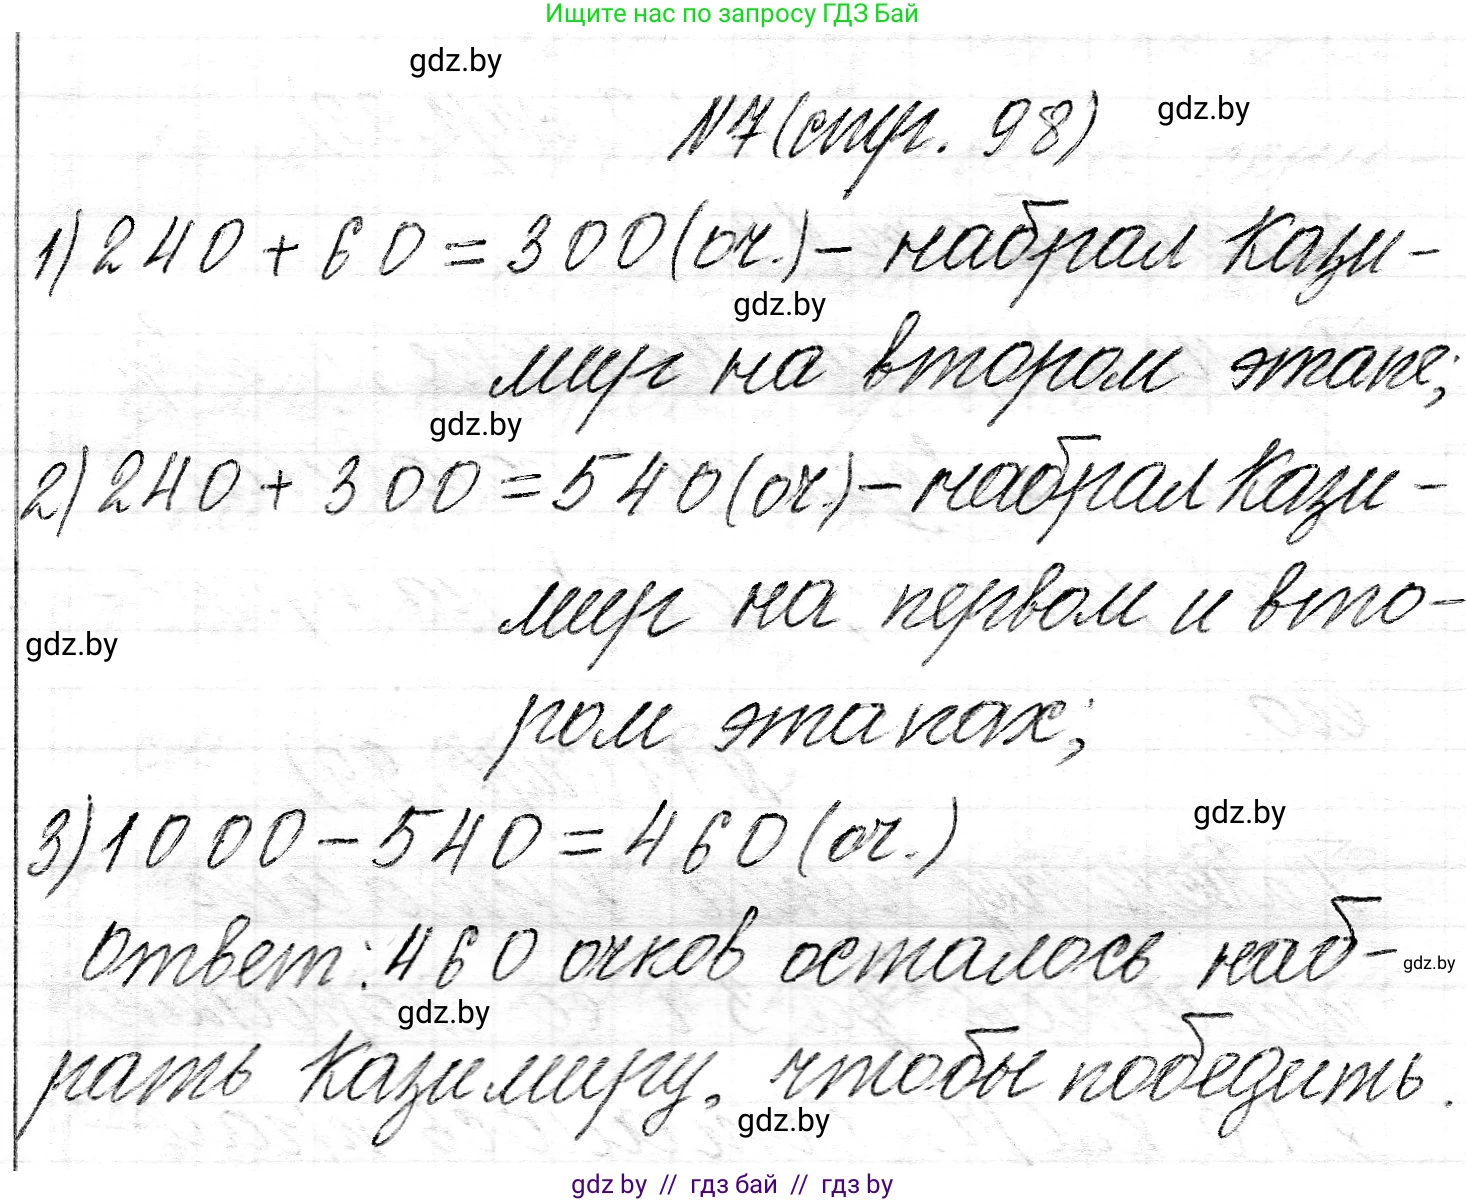 Ищите нас по запросу ГДЗ Бай
gdz.by
№7 (стр. 98)
gdz.by
1) 240 + 60 = 300 (оч.) – набрал Кази-
gdz.by
мир на втором этапе;
gdz.by
2) 240 + 300 = 540 (оч.) – набрал Кази-
мир на первом и вто-
gdz.by
ром этапах;
gdz.by
3) 1000 – 540 = 460 (оч.)
Ответ: 460 очков осталось наб-
gdz.by
gdz.by
рать Казимиру, чтобы победить.
gdz.by
gdz by // гдз бай // гдз by